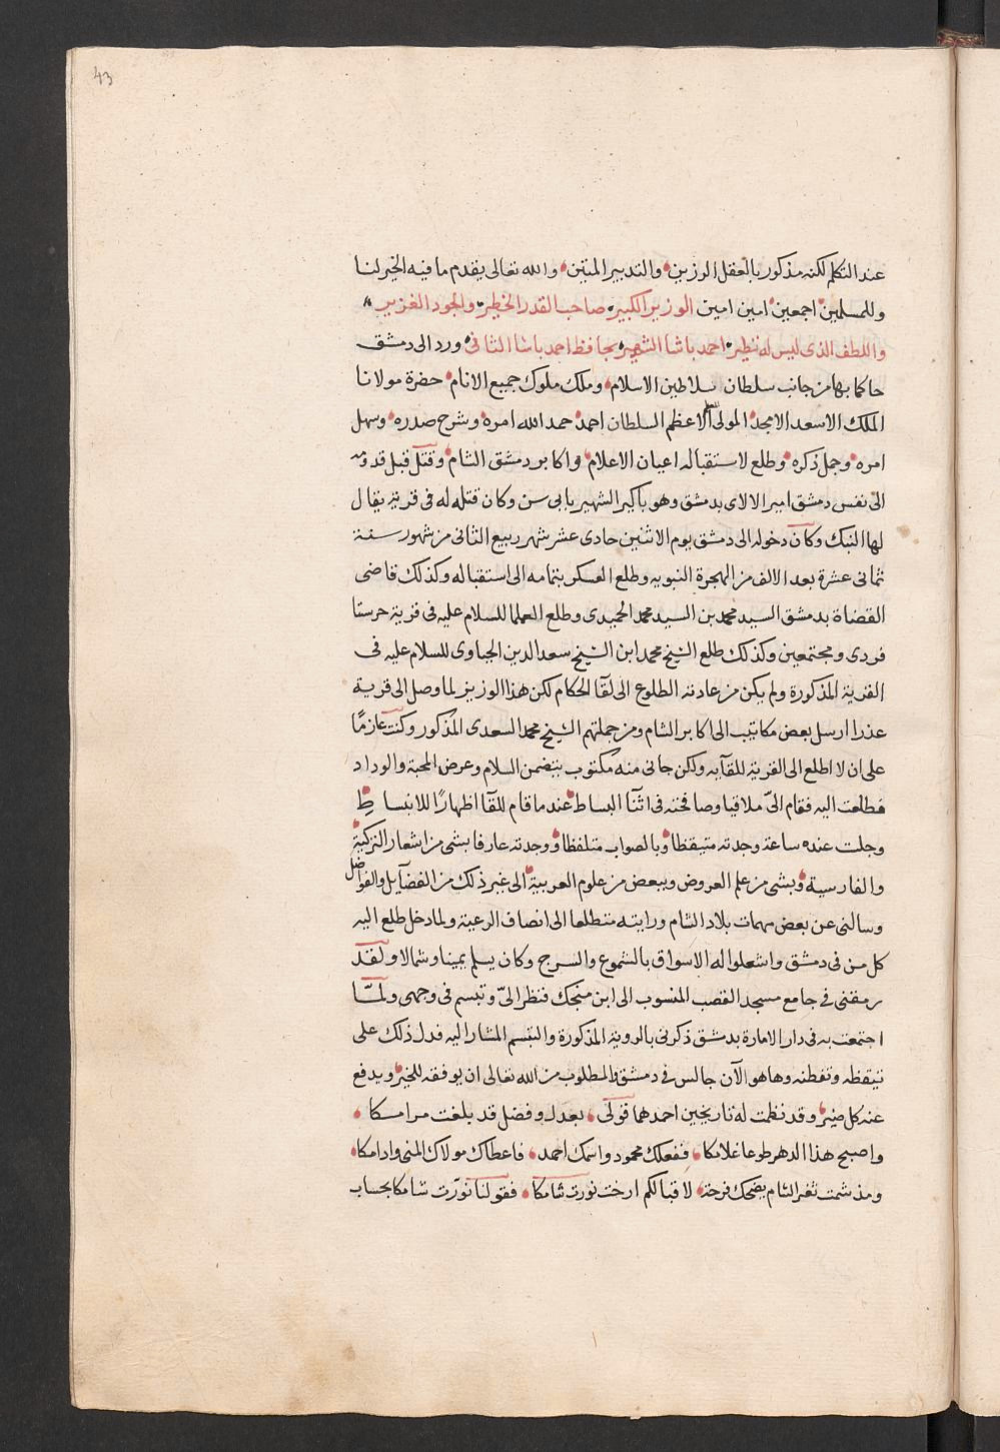 43
عند التكلم لكنه مذكور بالعقل الرزين والتدبير المتين والله تعالى يقدم ما فيه الخير لنا
وللمسلمين اجمعين امين امين الوزير الكبير صاحب القدر الخطير والجود الغزير
واللطف الذى ليس له نظير احمد باشا الشهير بحافظ احمد باشا الثانى ورد الى دمشق
حاكما بها من جانب سلطان سلاطين الاسلام وملك ملوك جميع الانام حضرة مولانا
الملك الاسعد الامجد المولى الاعظم السلطان احمد حمد الله امره وشرح صدره وسهل
امره وجمل ذكره وطلع لاستقباله اعيان الاعلام واكابر دمشق الشام وقتل قبل قدومه
الى نفس دمشق امير الالاى بدمشق وهو باكير الشهير بابى سن وكان قتله له فى قرية يقال
لها النبك وكان دخوله الى دمشق يوم الاثنين حادى عشر شهر ربيع الثانى من شهور سنة
ثمانى عشرة بعد الالف من الهجرة النبويه وطلع العسكر بتمامه الى استقباله وكذلك قاضى
القضاة بدمشق السيد محمد بن السيد محمد الحميدى وطلع العلما للسلام عليه فى قرية حرستا
فردى ومجتمعين وكذلك طلع الشيخ محمد ابن الشيخ سعد الدين الجباوى للسلام عليه فى
القرية المذكورة ولم يكن من عادته الطلوع الى لقا الحكام لكن هذا الوزير لما وصل الى قرية
عذرا ارسل بعض مكاتيب الى اكابر الشام ومن جملتهم الشيخ محمد السعدى المذكور وكنت عازمًا
على ان لا اطلع الى القرية للقآيه ولكن جانى منه مكتوب يتضمن السلام وعرض المحبة والوداد
فطلعت اليه فقام الىّ ملاقيا وصافحته فى اثنآ البساط عندما قام للقآ اظهارًا للانبساطِ
وجلت عنده ساعة وجدته متيقظا وبالصواب متلفظا ووجدته عارفا بشى من اشعار التركية
والفارسية وبشى من علم العروض وببعض من علوم العربية الى غير ذلك من الفضآيل والفواضل
وسالنى عن بعض مهمات بلاد الشام ورايته متطلعا الى انصاف الرعية ولما دخل طلع اليه
كل من فى دمشق واشعلوا له الاسواق بالشموع والسرج وكان يسلم يمينا وشمالا ولقد
رمقنى فى جامع مسجد القصب المنسوب الى ابن منجك فنظر الىّ وتبسم فى وجهى ولمّا
اجتمعت به فى دار الامارة بدمشق ذكرنى بالروية المذكورة والتبسم المشار اليه فدل ذلك على
تيقظه وتفطنه وها هو الآن جالس فى دمشق والمطلوب من الله تعالى ان يوفقه للخير ويدفع
عنه كل ضير وقد نظمت له تاريخين احدهما قولى بعدل وفضل قد بلغت مرامكا
واصبح هذا الدهر طوعا غلامكا ففعلك محمود واسمك احمد فاعطاك مولاك المنى وادامكا
ومذ شمت ثغر الشام يضحك فرحة لاقبالكم ارخت نورت شامكا فقولنا نوّرت شامكا بحساب